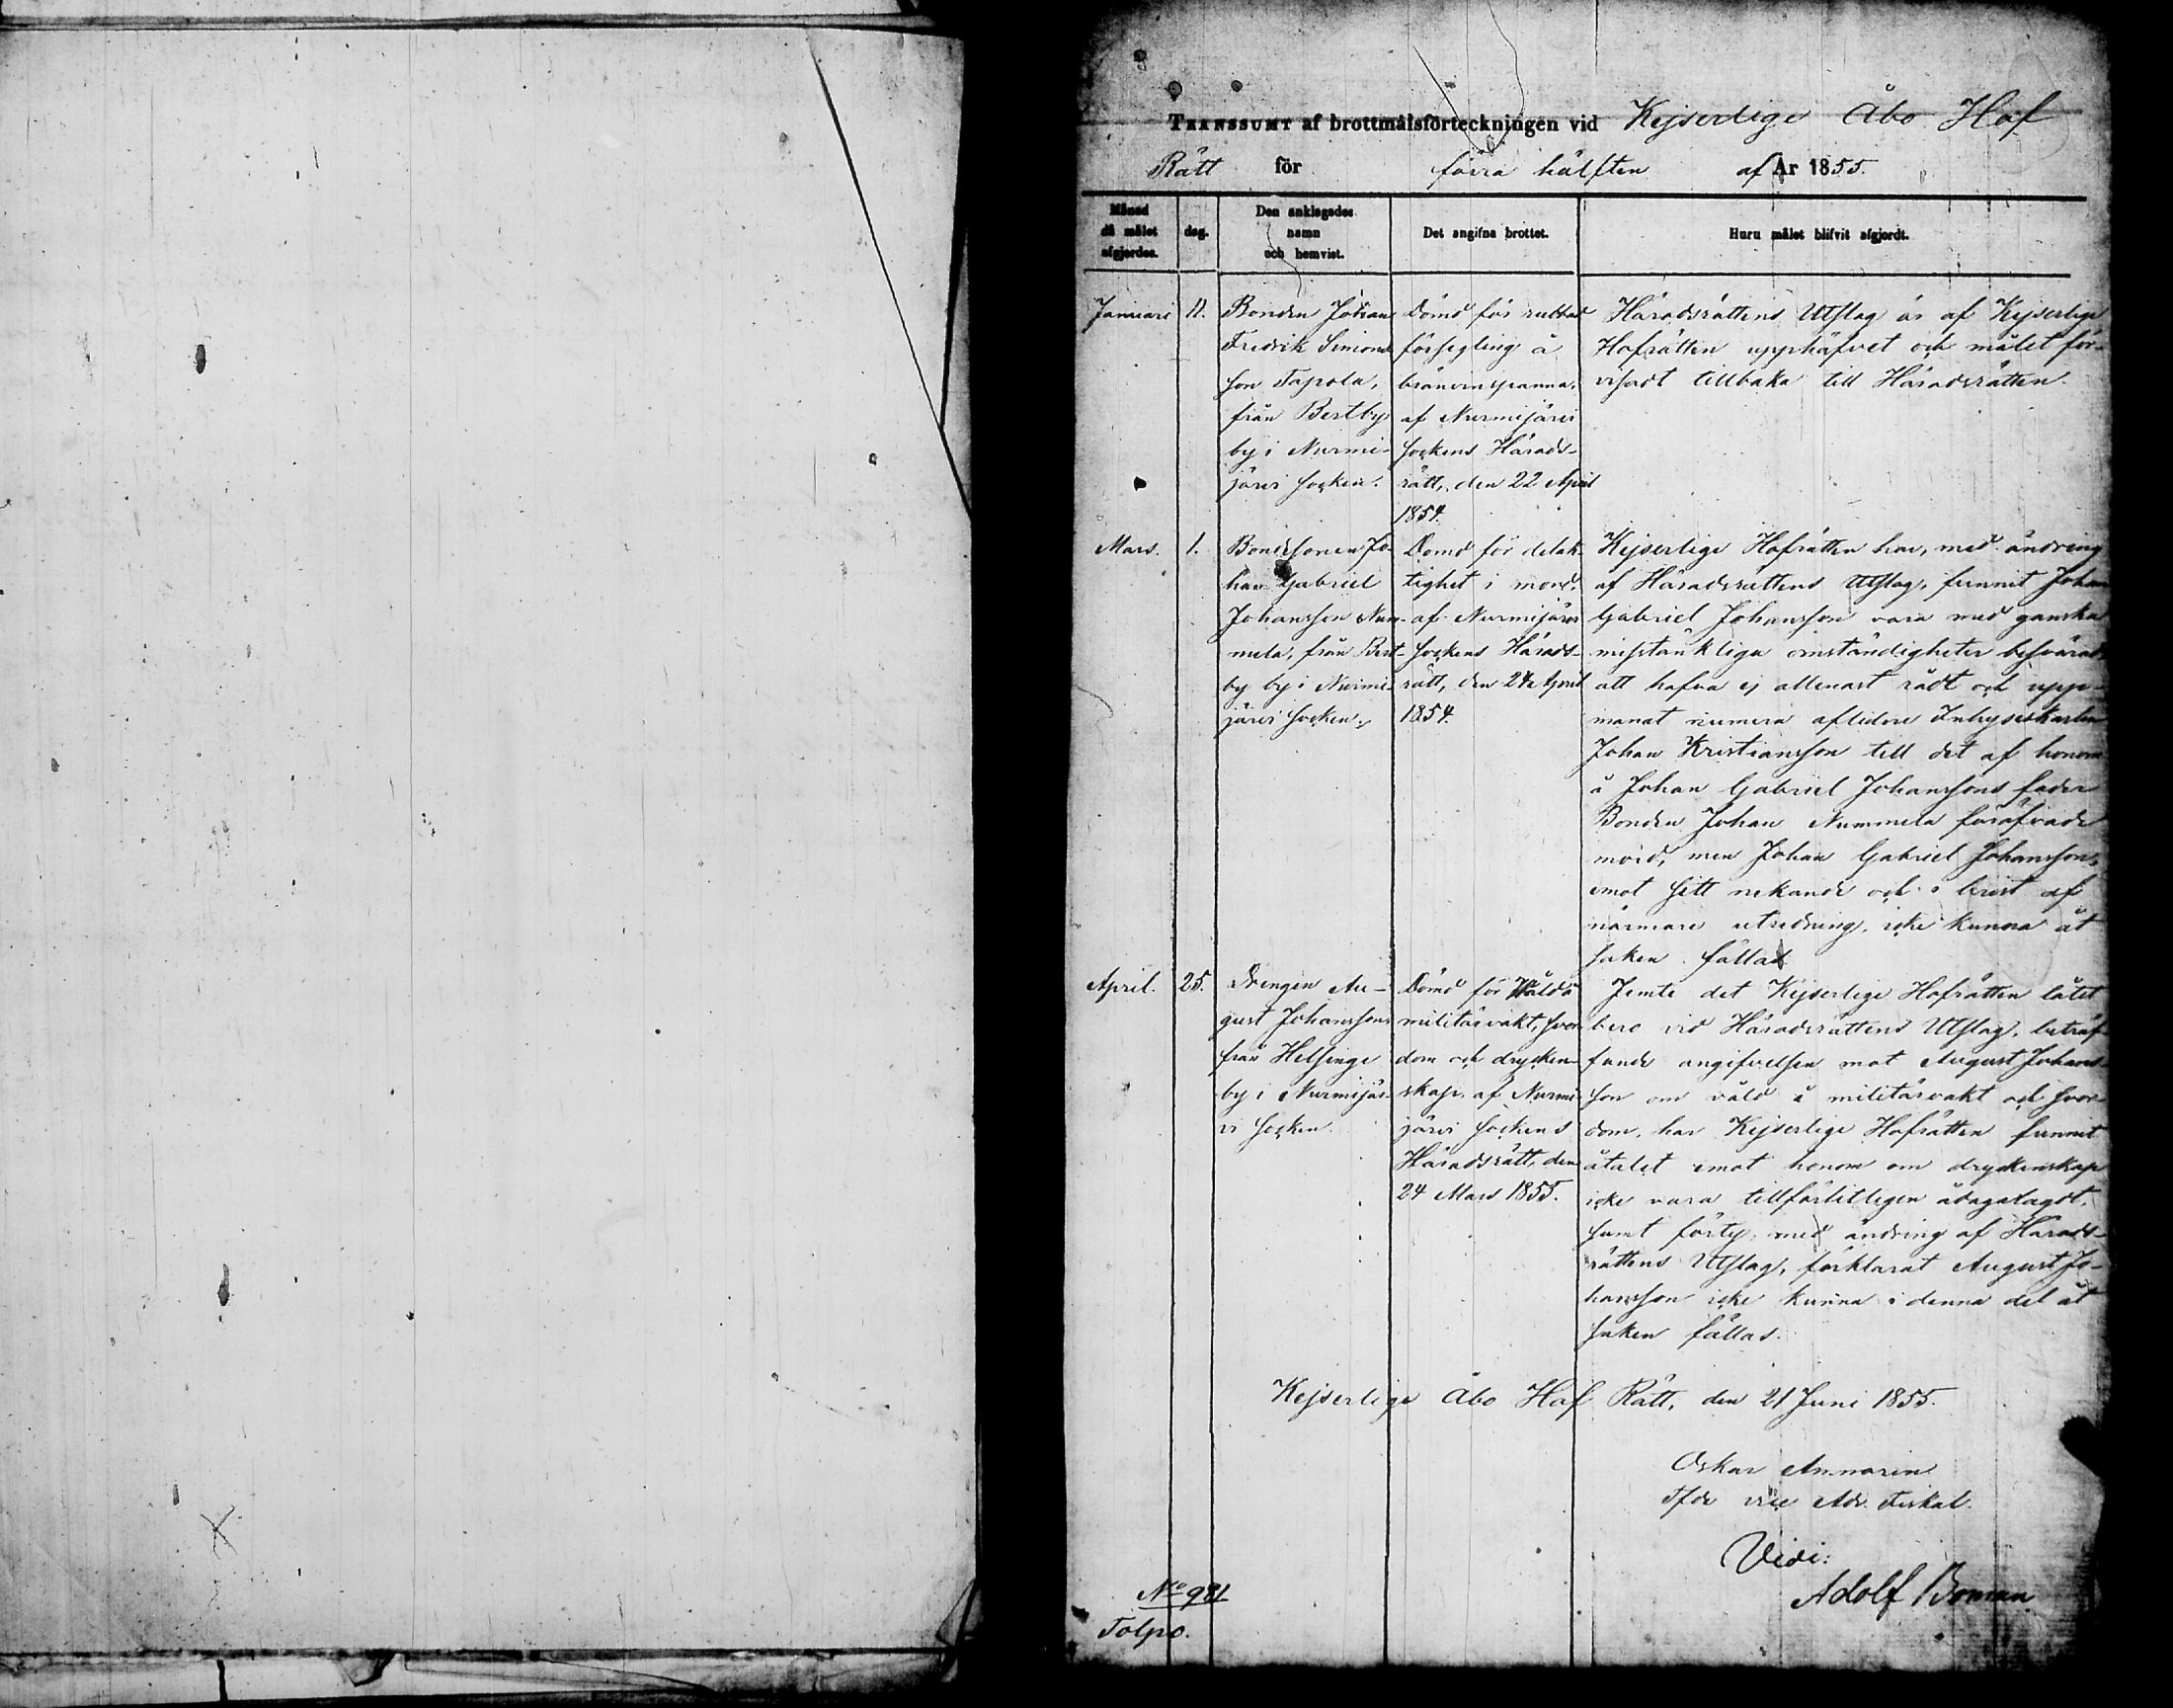 TRANSSUMT af brottmålsförteckningen vid Kejserlige Åbo Hof
Rätt för förra hälften af År 1855.
Månad
då målet
afgjordes.
dag.
Den anklagades
namn
och hemvist.
Det angifna brottet.
Huru målet blifvit afgjordt.
Januari 11.
Bonden Johan
Fredrik Simons
son Tapola,
från Bertby
by i Nurmi-
järvi socken.
Dömd för rubbad
försegling å
bränvinspanna,
af Nurmijärvi
sockens Härads-
rätt, den 22 April
1854.
Häradsrättens Utslag är af Kejserlige
Hofrätten upphäfvet och målet för-
visadt tillbaka till Häradsrätten.
Mars. 1.
Bondesonen Jo-
han Gabriel
Johansson Num-
mela, från Bert-
by by i Nurmi-
järvi socken.
Dömd för delak-
tighet i mord,
af Nurmijärvi
sockens Härads-
rätt, den 24 April
1854.
Kejserlige Hofrätten har, med ändring
af Häradsrättens Utslag, funnit Johan
Gabriel Johansson vara med ganska
misstänkliga omständigheter besvärad,
att hafva ej allenast rådt och upp-
manat numera aflidne Inhyseskarlen
Johan Kristiansson till det af honom
å Johan Gabriel Johanssons fader
Bonden Johan Nummela föröfvade
mord, men Johan Gabriel Johansson,
emot sitt nekande och i brist af
närmare utredning, icke kunna åt
saken fällas.
April. 25.
Drengen Au-
gust Johansson
från Helsinge
by i Nurmijär-
vi socken.
Dömd för Våld å
militärvakt, svor-
dom och drycken-
skap, af Nurmi-
järvi sockens
Häradsrätt, den
24 Mars 1855.
Jemte det Kejserlige Hofrätten låtit
bero vid Häradsrättens Utslag, beträf-
fande angifvelsen mot August Johans-
son om våld å militärvakt och svor-
dom, har Kejserlige Hofrätten funnit
åtalet emot honom om dryckenskap
icke vara tillförlitligen ådagalagdt,
samt förty, med ändring af Härads-
rättens Utslag, förklarat August Jo-
hansson icke kunna i denna del åt
saken fällas.
Kejserlige Åbo Hof Rätt, den 21 Juni 1855.
Oskar
vice Adv. Fiskal.
Vidi:
Adolf Boman
No 981
Tolpo.